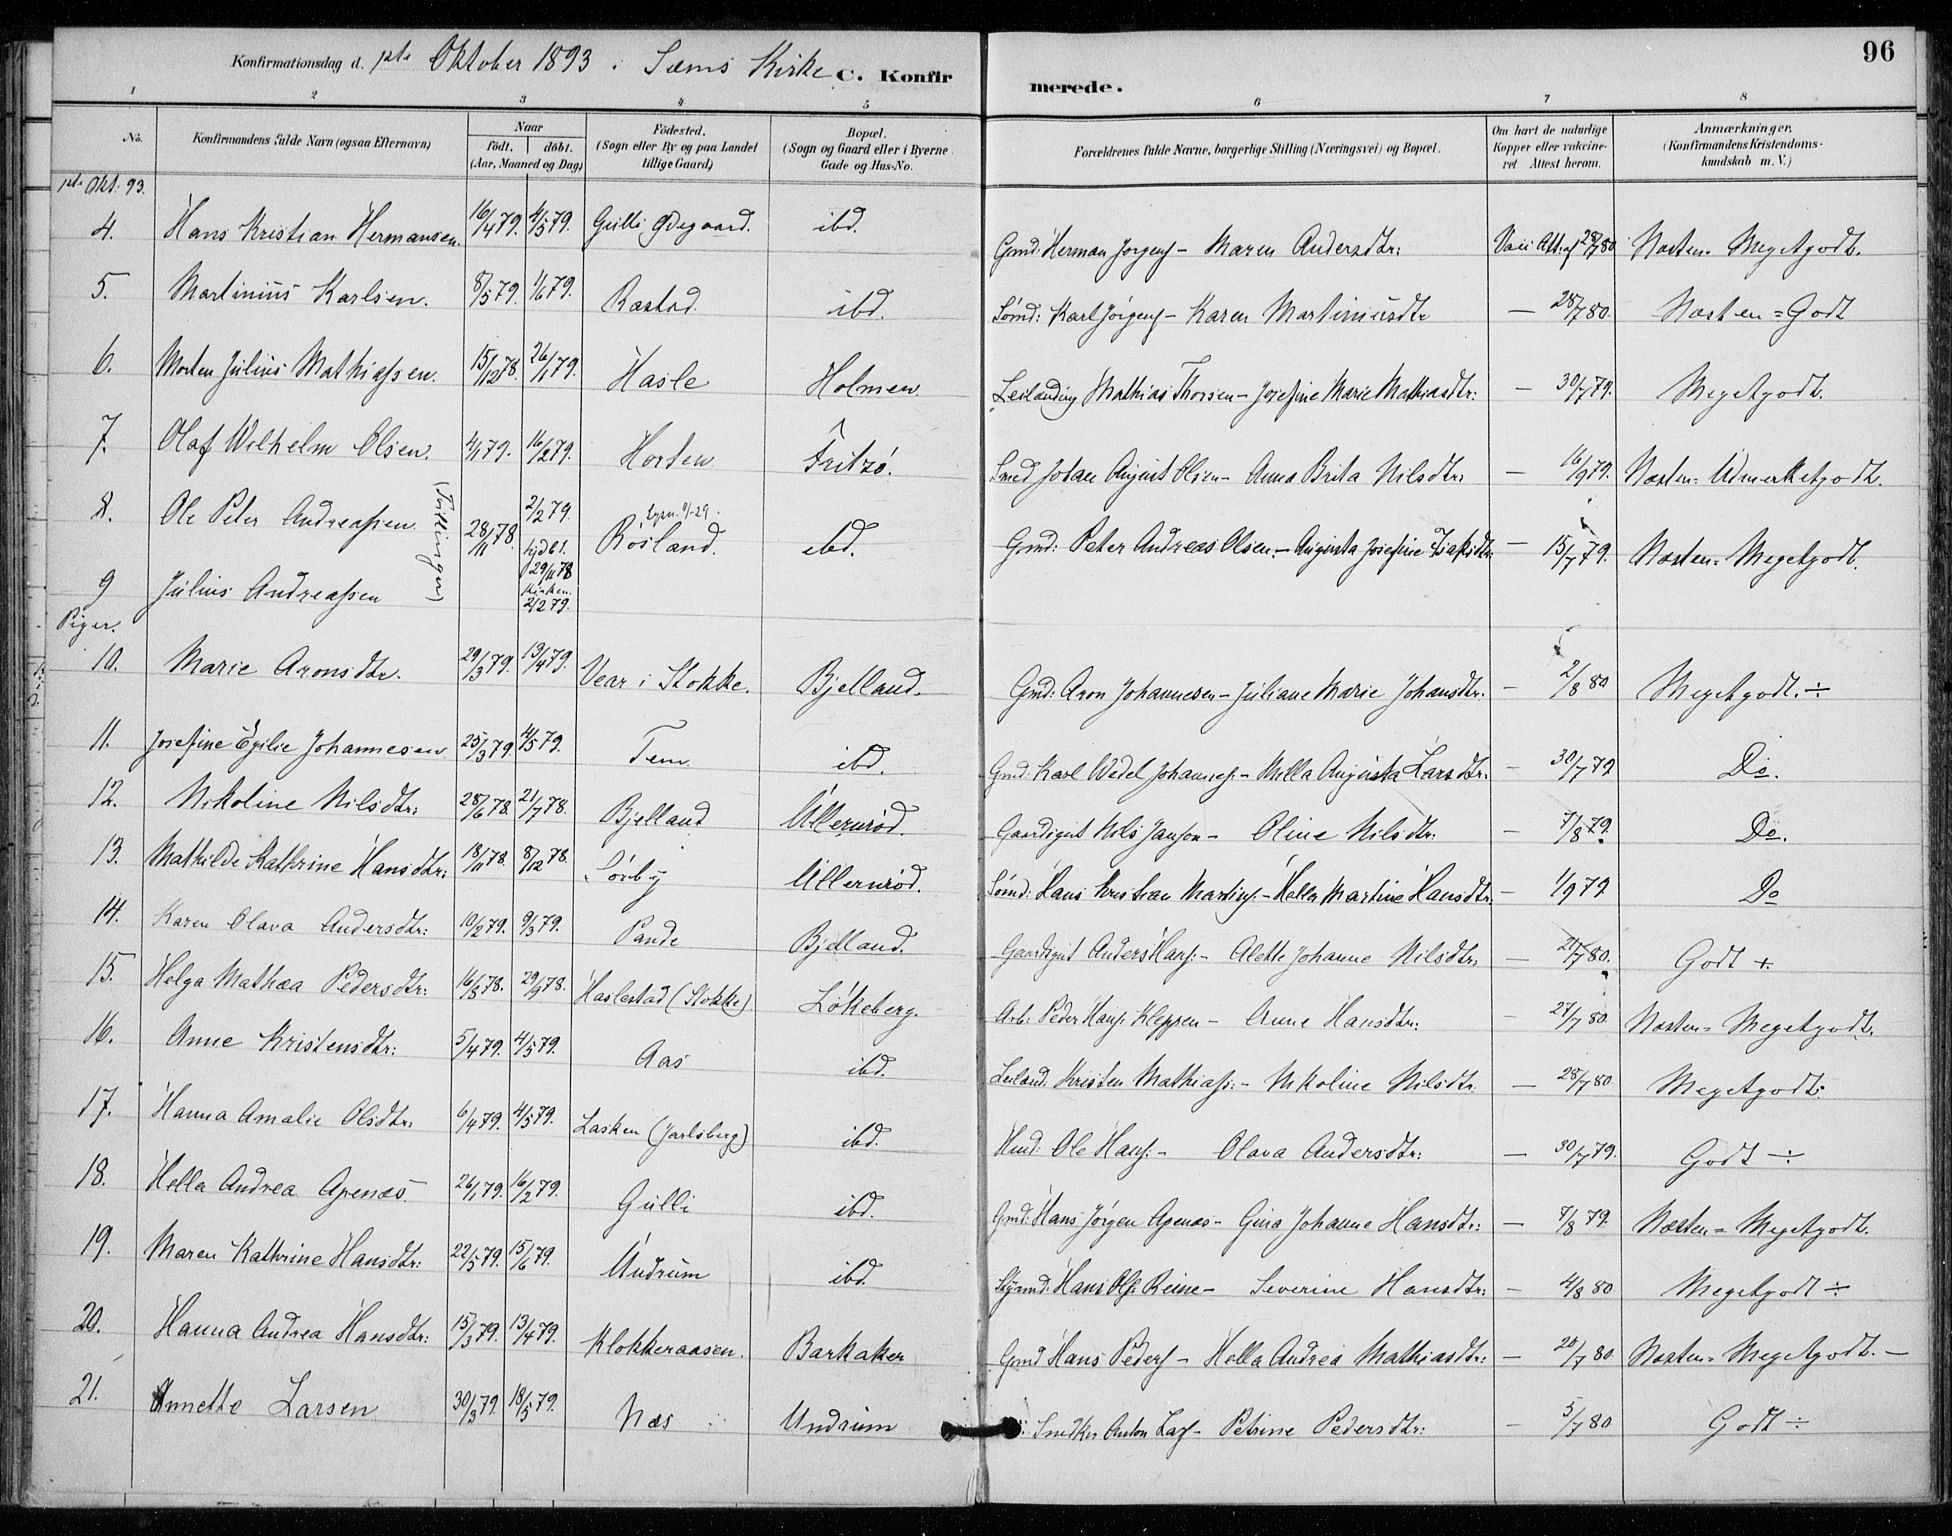 96
Konfirmationsdag d. 1ste Oktober 1893 i Sæms Kirke C. Konfir merede.
1 2 3 4 5 6 7 8
No. Konfirmandens fulde Navn (ogsaa Efternavn) Naar födt. döbt. (Aar, Maaned og Dag) Födested. (Sogn eller By og paa Landet tillige Gaard) Bopæl. (Sogn og Gaard eller i Byerne Gade og Hus-No. Forældrenes fulde Navne, borgerlige Stilling (Næringsvei) og Bopæl. Om havt de naturlige Kopper eller vakcineret Attest herom. Anmærkninger. (Konfirmandens Kristendomskundskab m. V.)
1ste Okt. 93.
4. Hans Kristian Hermansen. 16/4 79. 4/5 79. Gulli Ødegaard. ibd. Gmd: Herman Jørgens - Maren Andersdtr: Vacc Att. af 28/7 80. Næsten = Megetgodt.
5. Martinius Karlsen. 8/5 79. 1/6 79. Rastad. ibd. Sømd: Karl Jørgens - Karen Martiniusdtr — 28/7 80. Næsten = Godt
6. Morten Julius Mathiassen. 15/12 78. 26/1 79. Hasle Holmen. Leilænding Mathias Thorsen - Josefine Marie Mathiasdtr: — 30/7 79. Megetgodt.
7. Olaf Wilhelm Olsen. 4/1 79. 16/2 79. Horten Fritzö. Smed Johan August Olsen - Anna Brita Nilsdtr: — 16/9 79. Næsten = Udmerketgodt.
8. Ole Peter Andreassen (Tvillinger) 28/11 78. 2/2 79. Rösland. ibd. Gmd: Peter Andreas Olsen. - Augusta Josefine Isaksdtr. — 15/7 79. Næsten = Megetgodt.
9 Julius Andreassen hjdbt. 29/11 78 Kirken. 2/2 79.
Piger.
10. Marie Aronsdtr. 29/3 79. 13/4 79. Vear i Stokke. Bjelland. Gmd: Aron Johannesen - Juliane Marie Johansdtr: — 2/8 80 Megetgodt. ÷
11. Josefine Egilie Johannesen 25/3 79 4/5 79. Tem ibd. Gmd: Karl Wedel Johannes: - Milla Augusta Larsdtr: — 30/7 79 Do.
12. Nikoline Nilsdtr: 28/6 78. 21/7 78. Bjelland Ullernröd. Gaardsgut Nils Janson - Oline Nilsdtr. — 7/8 79. Do.
13. Mathilde Kathrine Hansdtr: 18/11 78. 8/12 78. Sörby Ullernröd. Sömd: Hans Kristian Martins: - Hella Martine Hansdtr. — 1/9 79 Do
14. Karen Olava Andersdtr: 10/2 79. 9/3 79. Pande Bjelland. Gaardsgut Anders Hans: - Alette Johanne Nilsdtr: — 21/7 80. Godt +.
15. Helga Mathea Pedersdtr: 16/8 78. 29/9 78. Haslestad (Stokke) Lökeberg. Arb: Peder Hans: Kleppen - Anne Hansdtr: — 27/7 80. Næsten = Megetgodt.
16. Anne Kristensdtr: 5/4 79. 4/5 79. Aas ibd. Leilænd: Kristen Mathias: - Nikoline Nilsdtr. — 28/7 80 Megetgodt:
17. Hanna Amalie Olsdtr: 6/4 79. 4/5 79. Lasken (Jarlsberg) ibd. Hmd: Ole Hans: - Olava Andersdtr: — 30/7 79. Godt ÷
18. Hella Andrea Apenæs. 26/1 79. 16/2 79. Gulli ibd. Gmd: Hans Jörgen Apenæs - Gina Johanne Hansdtr: — 7/8 79. Næsten = Megetgodt.
19. Maren Kathrine Hansdtr: 22/5 79. 15/6 79. Undrum ibd. Hans Ols: Reine - Severine Hansdtr: — 4/8 80 Megetgodt ÷
20. Hanna Andrea Hansdtr: 15/3 79. 13/4 79. Klokkeraasen. Barkaker Gmd Hans Peders - Hella Andrea Mathiasdtr: — 20/7 80 Næsten = Megetgodt. —
21. Annette Larsen 30/3 79. 18/5 79. Næs Undrum Snedker Anton Lars - Petrine Pedersdtr: — 5/7 80 Godt ÷